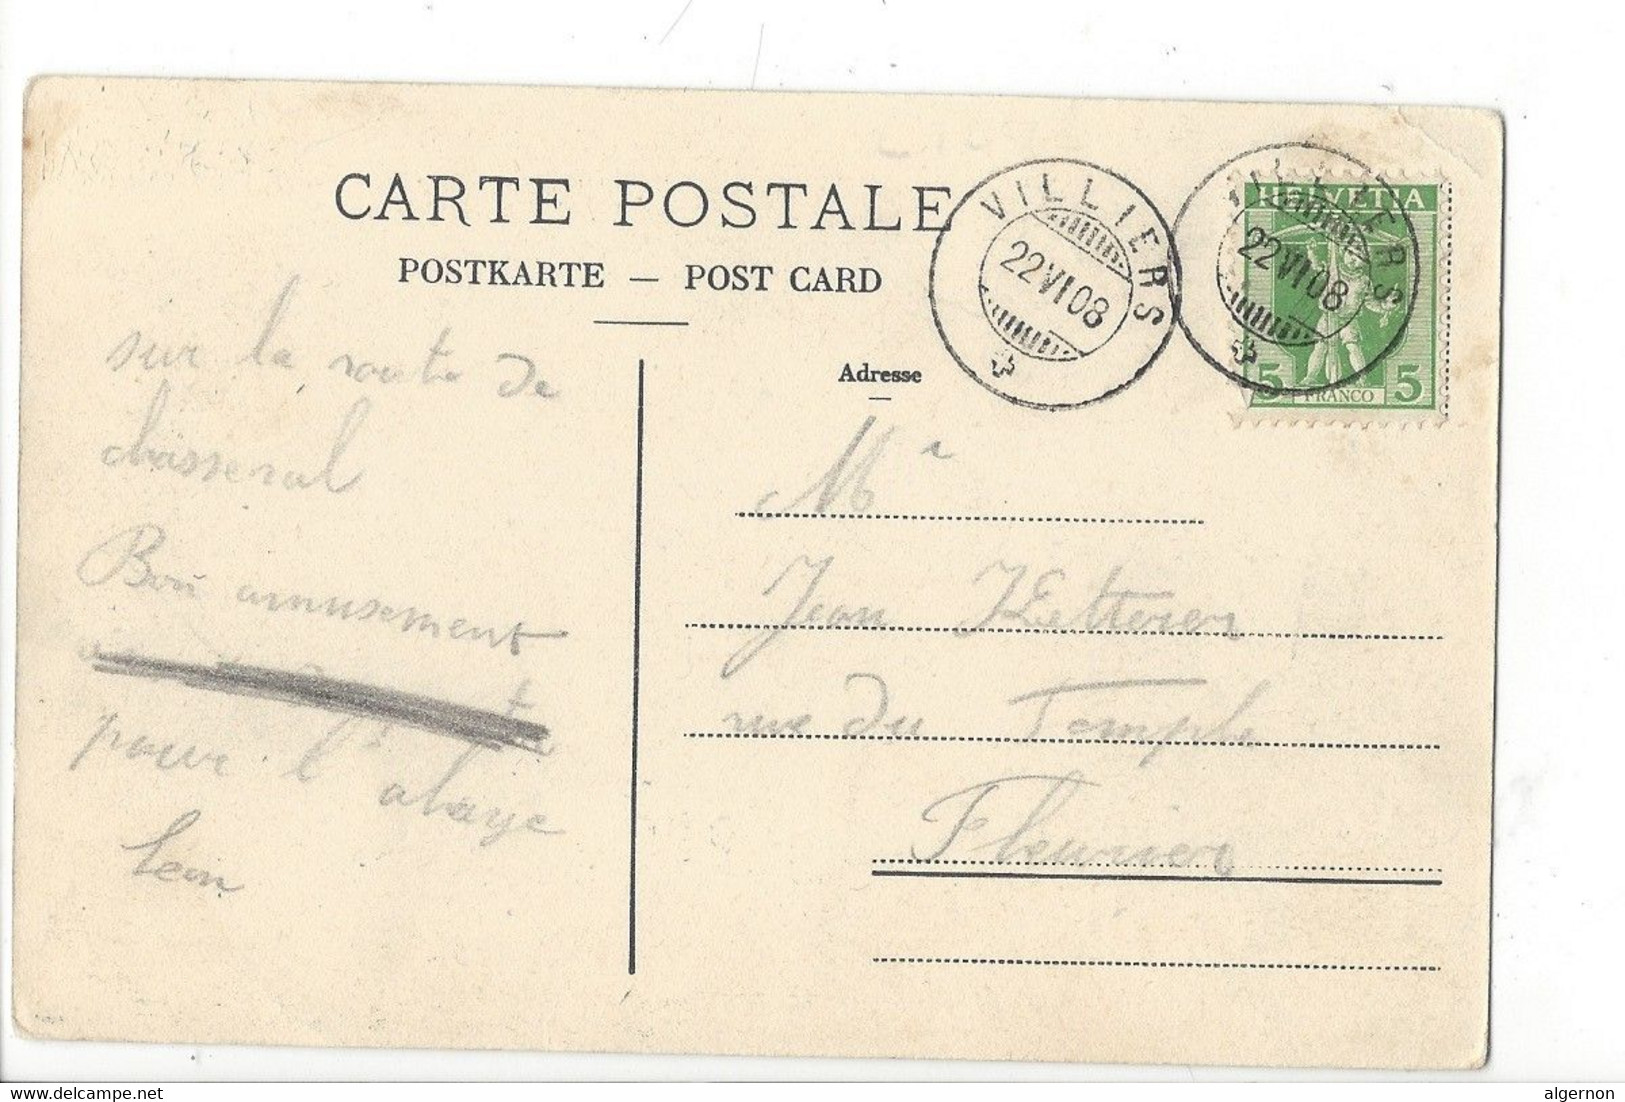 CARTE POSTALE
POSTKARTE — POST CARD
VILLIERS
22 VI 08
VILLIERS
22 VI 08
HELVETIA
5 FRANCO 5
sur la route de
chasseral
Bon amusement
pour l'abaye
Léon
Adresse
Mr
Jean
rue du Temple
Fleurier
www.delcampe.net
algernon